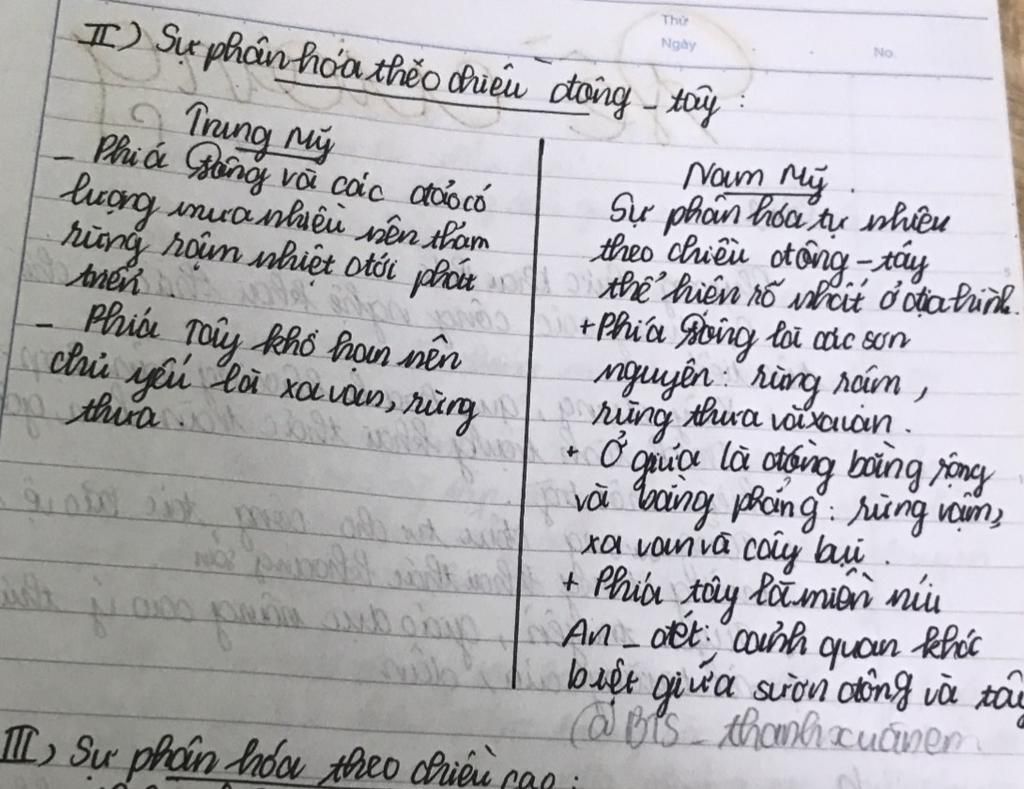 Thứ
Ngày
No.
II) Sự phân hóa theo chiều đông - tây :
Trung Mỹ
- Phía Đông và các đảo có
lượng mưa nhiều nên thảm
rừng rậm nhiệt đới phát
triển.
- Phía Tây khô hạn nên
chủ yếu là xa van, rừng
thưa.
Nam Mỹ.
Sự phân hóa tự nhiên
theo chiều đông - tây
thể hiện rõ nhất ở địa hình.
+ Phía Đông là các sơn
nguyên: rừng rậm,
rừng thưa và xa van.
+ Ở giữa là đồng bằng rộng
và bằng phẳng: rừng rậm,
xa van và cây bụi.
+ Phía tây là miền núi
An - đét: cảnh quan khác
biệt giữa sườn đông và tây
@BTS_thanhxuanem
III) Sự phân hóa theo chiều cao :